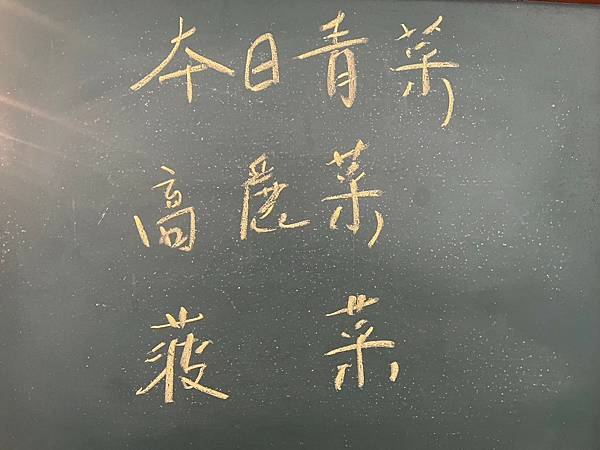 本日青菜
高麗菜
菠菜